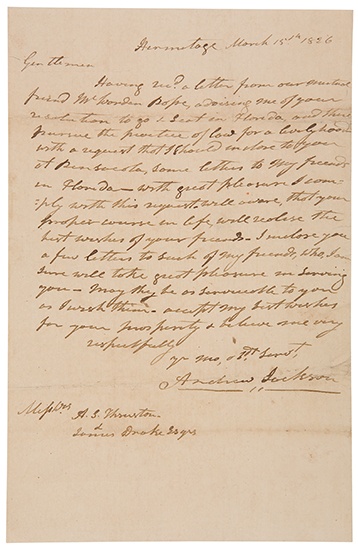 Hermitage March 15th 1826
Gentlemen
Having recd a letter from our mutual
friend Mr Worden Pope, advising me of your
resolution to go & settle in Florida, and there
pursue the practice of law for a livelihood
with a request that I should inclose to you
at Pensacola, some letters to my friends
in Florida – with great pleasure I com-
ply with this request, well aware, that your
proper course in life, will realise the
best wishes of your friends – I inclose you
a few letters to such of my friends, who, I am
sure will take great pleasure in serving
you – May they be as serviceable to you
as I wish them – accept my best wishes
for your prosperity & believe me very
respectfully
yr mo, obt Servt,
Andrew Jackson
Messrs
A. S. Thruston
&
James Drake Esqrs